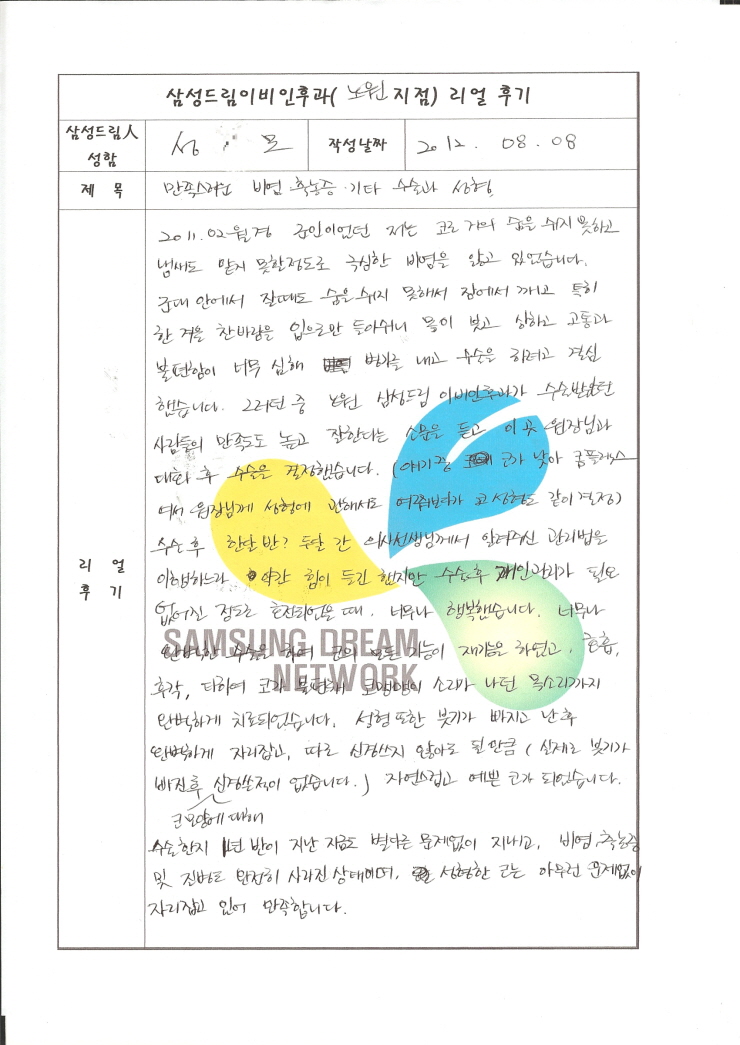 삼성드림이비인후과( 노원 지점) 리얼 후기
삼성드림人 성함
성 모
작성날짜
2012. 08. 08
제 목
만족스러운 비염 축농증·기타 수술과 성형
리 얼 후 기
2011.02월경 군인이었던 저는 코로 거의 숨을 쉬지 못하고
냄새도 맡지 못할정도로 극심한 비염을 앓고 있었습니다.
군대 안에서 잘때도 숨을 쉬지 못해서 잠에서 깨고 특히
한 겨울 찬바람을 입으로만 들이쉬니 목이 붓고 상하고 고통과
불편함이 너무 심해 병가를 내고 수술을 하려고 결심
했습니다. 그러던 중 노원 삼성드림 이비인후과가 수술받았던
사람들의 만족도도 높고 잘한다는 소문을 듣고 이곳 원장님과
대화 후 수술을 결정했습니다. (얘기중 코가 낮아 콤플렉스
여서 원장님께 성형에 관해서도 여쭤보다가 코성형도 같이 결정)
수술 후 한달 반? 두달 간 의사선생님께서 알려주신 관리법을
이행하느라 약간 힘이 들긴 했지만 수술후 개인관리가 필요
없어진 정도로 호전되었을 때, 너무나 행복했습니다. 너무나
완벽한 수술을 하여 코의 모든 기능이 재기능을 하였고, 호흡,
후각, 더하여 코가 불편해 코맹맹이 소리가 나던 목소리까지
완벽하게 치료되었습니다. 성형 또한 붓기가 빠지고 난 후
완벽하게 자리잡고, 따로 신경쓰지 않아도 될 만큼 (실제로 붓기가
빠진후 신경쓴적이 없습니다.) 자연스럽고 예쁜 코가 되었습니다.
코모양에 대해
수술한지 1년 반이 지난 지금도 별다른 문제없이 지내고, 비염, 축농증
및 진행도 완전히 사라진 상태이며, 성형한 코는 아무런 문제없이
자리잡고 있어 만족합니다.
SAMSUNG DREAM
NETWORK